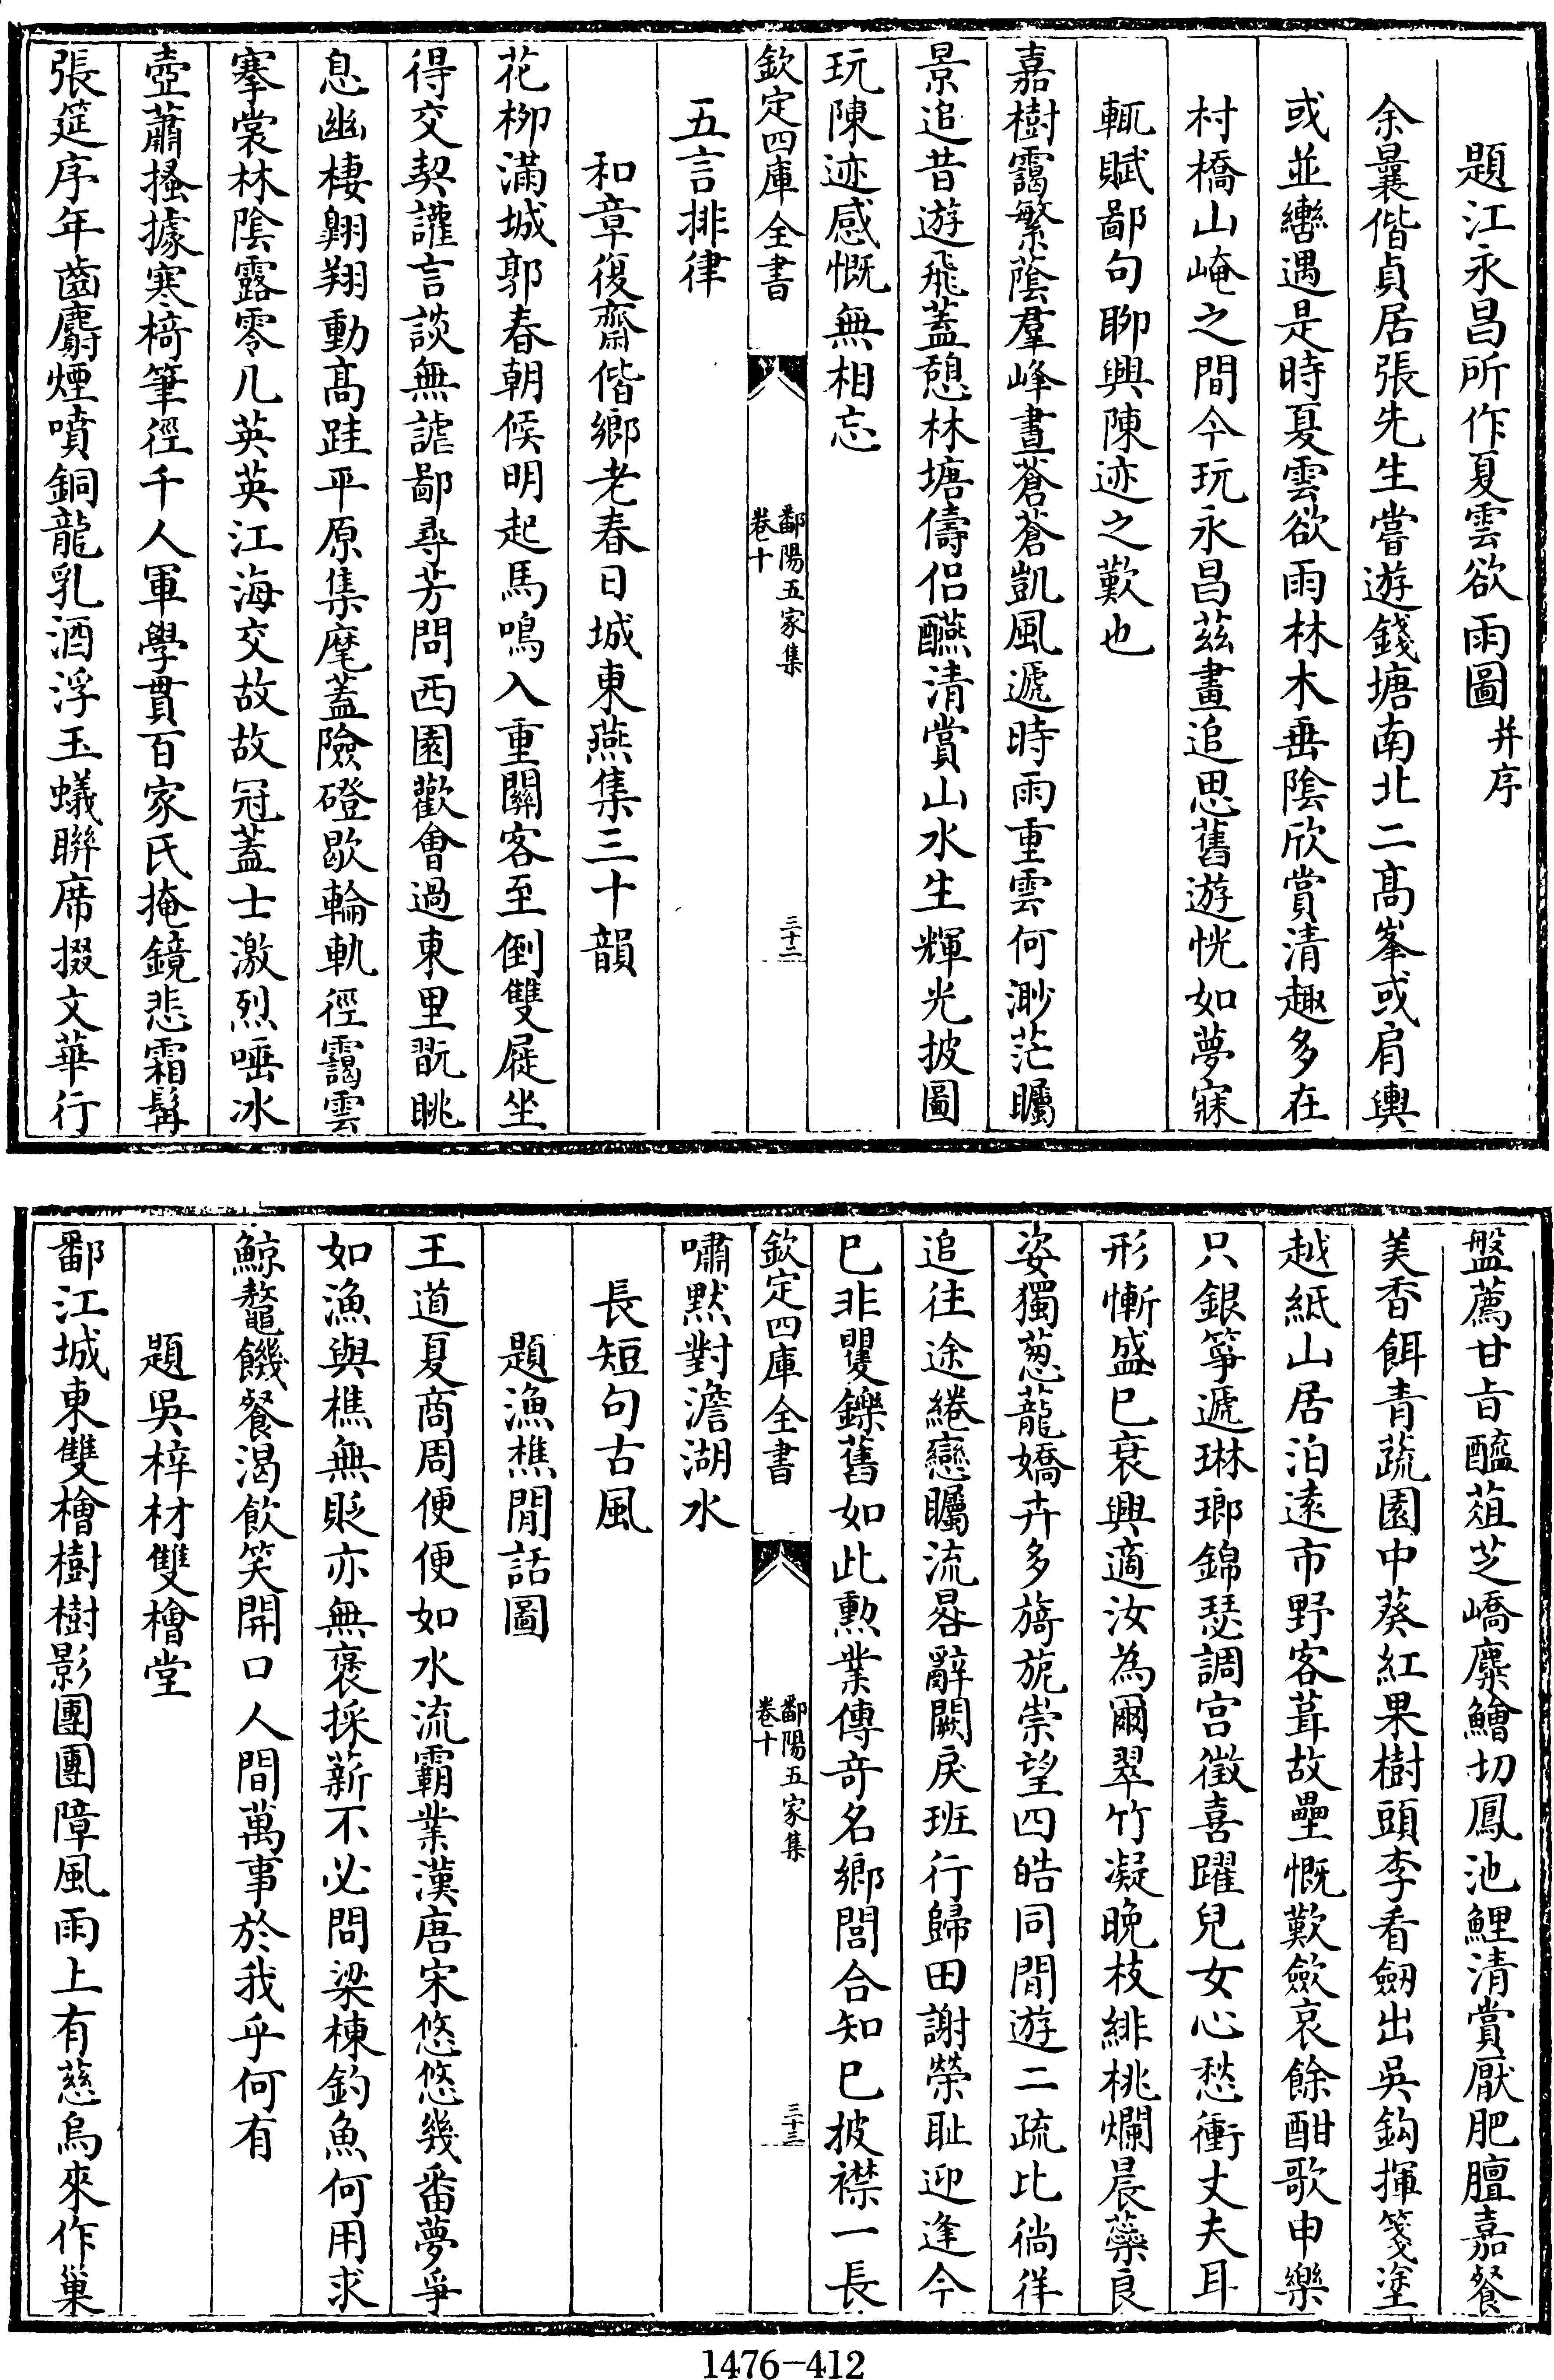 題江永昌所作夏雲欲雨圖并序
余曩偕貞居張先生嘗遊錢塘南北二髙峯或肩輿
或並轡遇是時夏雲欲雨林木垂陰欣賞清趣多在
村橋山崦之間今玩永昌茲畫追思舊遊恍如夢寐
輒賦鄙句聊興陳迹之歎也
嘉樹靄繁蔭羣峰晝蒼蒼凱風遞時雨重雲何渺茫矚
景追昔遊飛蓋憩林塘儔侣醼清賞山水生輝光披圖
玩陳迹感慨無相忘
欽定四庫全書
鄱陽五家集
卷十
三十二
五言排律
和章復齋偕鄉老春日城東燕集三十韻
花栁滿城郭春朝候明起馬鳴入重關客至倒雙屣坐
得交契讙言談無謔鄙尋芳問西園歡會過東里翫眺
息幽棲翺翔動髙跬平原集麾蓋險磴歇輪軌徑靄雲
搴裳林陰露零几英英江海交故故冠蓋士激烈唾冰
壺蕭搔據寒椅筆徑千人軍學貫百家氏掩鏡悲霜髯
張筵序年齒麝煙噴銅龍乳酒浮玉蟻聯席掇文華行
盤薦甘㫖醯葅芝嶠麋鱠切鳳池鯉清賞厭肥膻嘉餐
美香餌青蔬園中葵紅果樹頭李看劒出吳鈎揮箋塗
越紙山居泊逺市野客葺故壘慨歎歛哀餘酣歌申樂
只銀箏遞琳瑯錦瑟調宫徵喜躍兒女心愁衝丈夫耳
形慚盛已衰興適汝為爾翠竹凝晚枝緋桃爛晨蘂良
姿獨葱蘢嬌卉多旖旎崇望四皓同閒遊二疏比徜徉
追往途綣戀矚流晷辭闕戾班行歸田謝榮耻迎逢今
已非矍鑠舊如此勲業傳奇名鄉閭合知已披襟一長
欽定四庫全書
鄱陽五家集
卷十
三十三
嘯默對澹湖水
長短句古風
題漁樵閒話圖
王道夏商周便便如水流霸業漢唐宋悠悠幾番夢爭
如漁與樵無貶亦無褒採薪不必問梁棟釣魚何用求
鯨鼇饑餐渴飲笑開口人間萬事於我乎何有
題吳梓材雙檜堂
鄱江城東雙檜樹樹影團團障風雨上有慈烏來作巢
1476-412